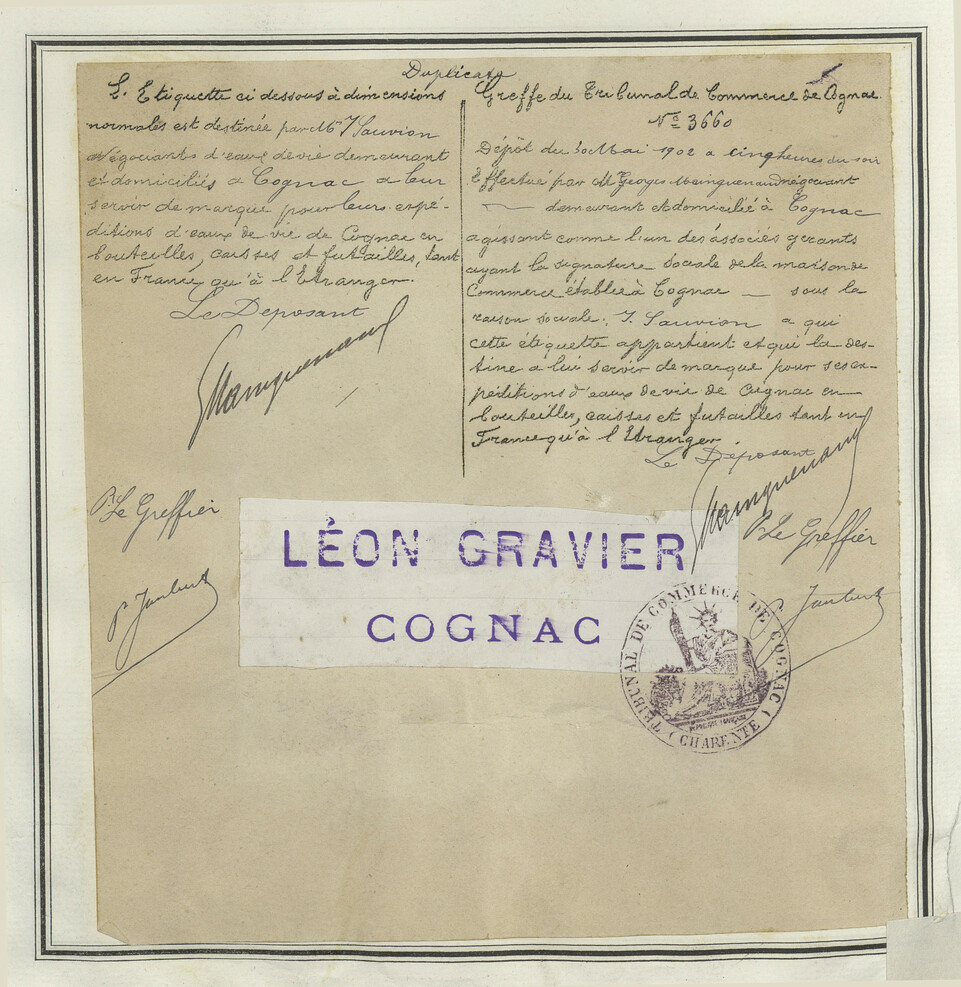 Duplicata
L'Etiquette ci dessous à dimensions
normales est destinée par Mrs J Sauvion
négociants d'eaux de vie demeurant
et domiciliés à Cognac à leur
servir de marque pour leurs expé-
ditions d'eaux de vie de Cognac en
bouteilles, caisses et futailles, tant
en France qu'à l'Etranger.
Le Deposant
GMainguenaud
P. Le Greffier
Greffe du Tribunal de Commerce de Cognac.
No 3660
Dépôt du 30 Mai 1902 à cinq heures du soir
Effectué par M Georges Mainguenaud négociant
demeurant et domicilié à Cognac
agissant comme l'un des associés gérants
ayant la signature sociale de la maison de
Commerce établie à Cognac — sous la
raison sociale: J. Sauvion à qui
cette étiquette appartient et qui la des-
tine à lui servir de marque pour ses ex-
péditions d'eaux de vie de Cognac en
bouteilles, caisses et futailles tant en
France qu'à l'Etranger
Le Déposant
GMainguenaud
P. Le Greffier
LÉON GRAVIER
COGNAC
TRIBUNAL DE COMMERCE DE COGNAC
(CHARENTE)